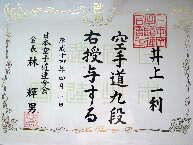 井上一利
空手道九段
右授与する
平成十年四月一日
日本空手道連合会
会長 林 輝男